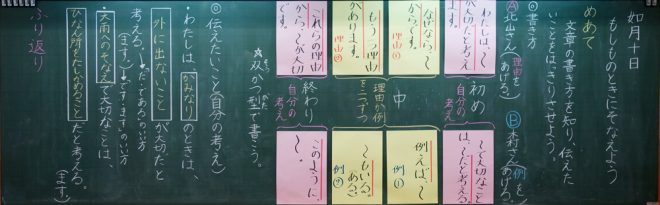 如月十日
もしものときにそなえよう
めあて
文章の書き方を知り、伝えた
いことをはっきりさせよう。
◎書き方
Ⓐ北山さん(理由を
あげる)
Ⓑ木村さん(例を
あげる)
初め
自分の
考え
わたしは、〜
が大切だと考え
ます。
〜で大切なこと
は、〜だと考える。
中
理由や例
を二つずつ
なぜなら、〜
からです。
理由①
もう一つ理由
があります。
理由②
例えば、〜
例①
〜もいる。
例②
終わり
自分の
考え
これらの理由
から、〜が大切
です。
このように、
〜。
双かつ型で書こう。
◎伝えたいこと(自分の考え)
・わたしは、かみなりのときは、
外に出ないことが大切だと
考える。
・大雨へのそなえで大切なことは、
ひなん所をたしかめることだと考える。
(ます)
ふり返り